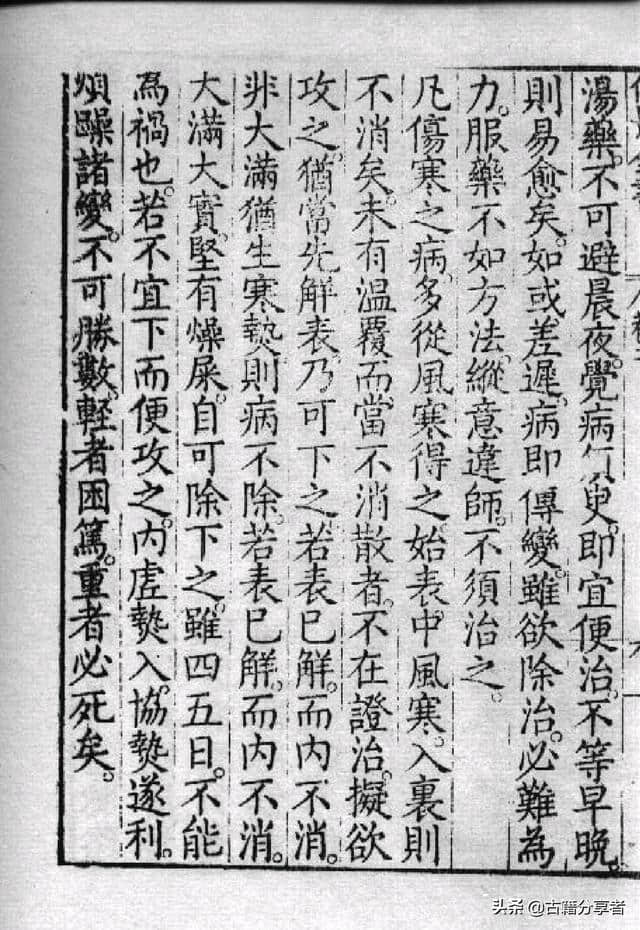 湯藥。不可避晨夜。覺病須臾。即宜便治。不等早晚。
則易愈矣。如或差遲。病即傳變。雖欲除治。必難為
力。服藥不如方法。縱意違師。不須治之。
凡傷寒之病。多從風寒得之。始表中風寒。入裏則
不消矣。未有溫覆而當。不消散者。不在證治。擬欲
攻之。猶當先解表。乃可下之。若表已解。而內不消。
非大滿猶生寒熱。則病不除。若表已解。而內不消。
大滿大實。堅有燥屎。自可除下之。雖四五日。不能
為禍也。若不宜下而便攻之。內虛熱入。協熱遂利。
煩躁諸變。不可勝數。輕者困篤。重者必死矣。
头条 @古籍分享者